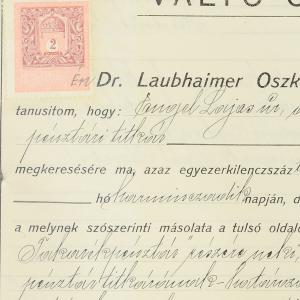 VÁLTÓ Ó
2
Én Dr. Laubhaimer Oszk
tanusitom, hogy: Engel Lajos úr,
pénztári titkár
megkeresésére ma, azaz egyezerkilenczszáz
hó harminczadik napján, d
a melynek szószerinti másolata a tulsó oldalo
Takarékpénztár
pénztár titkárának